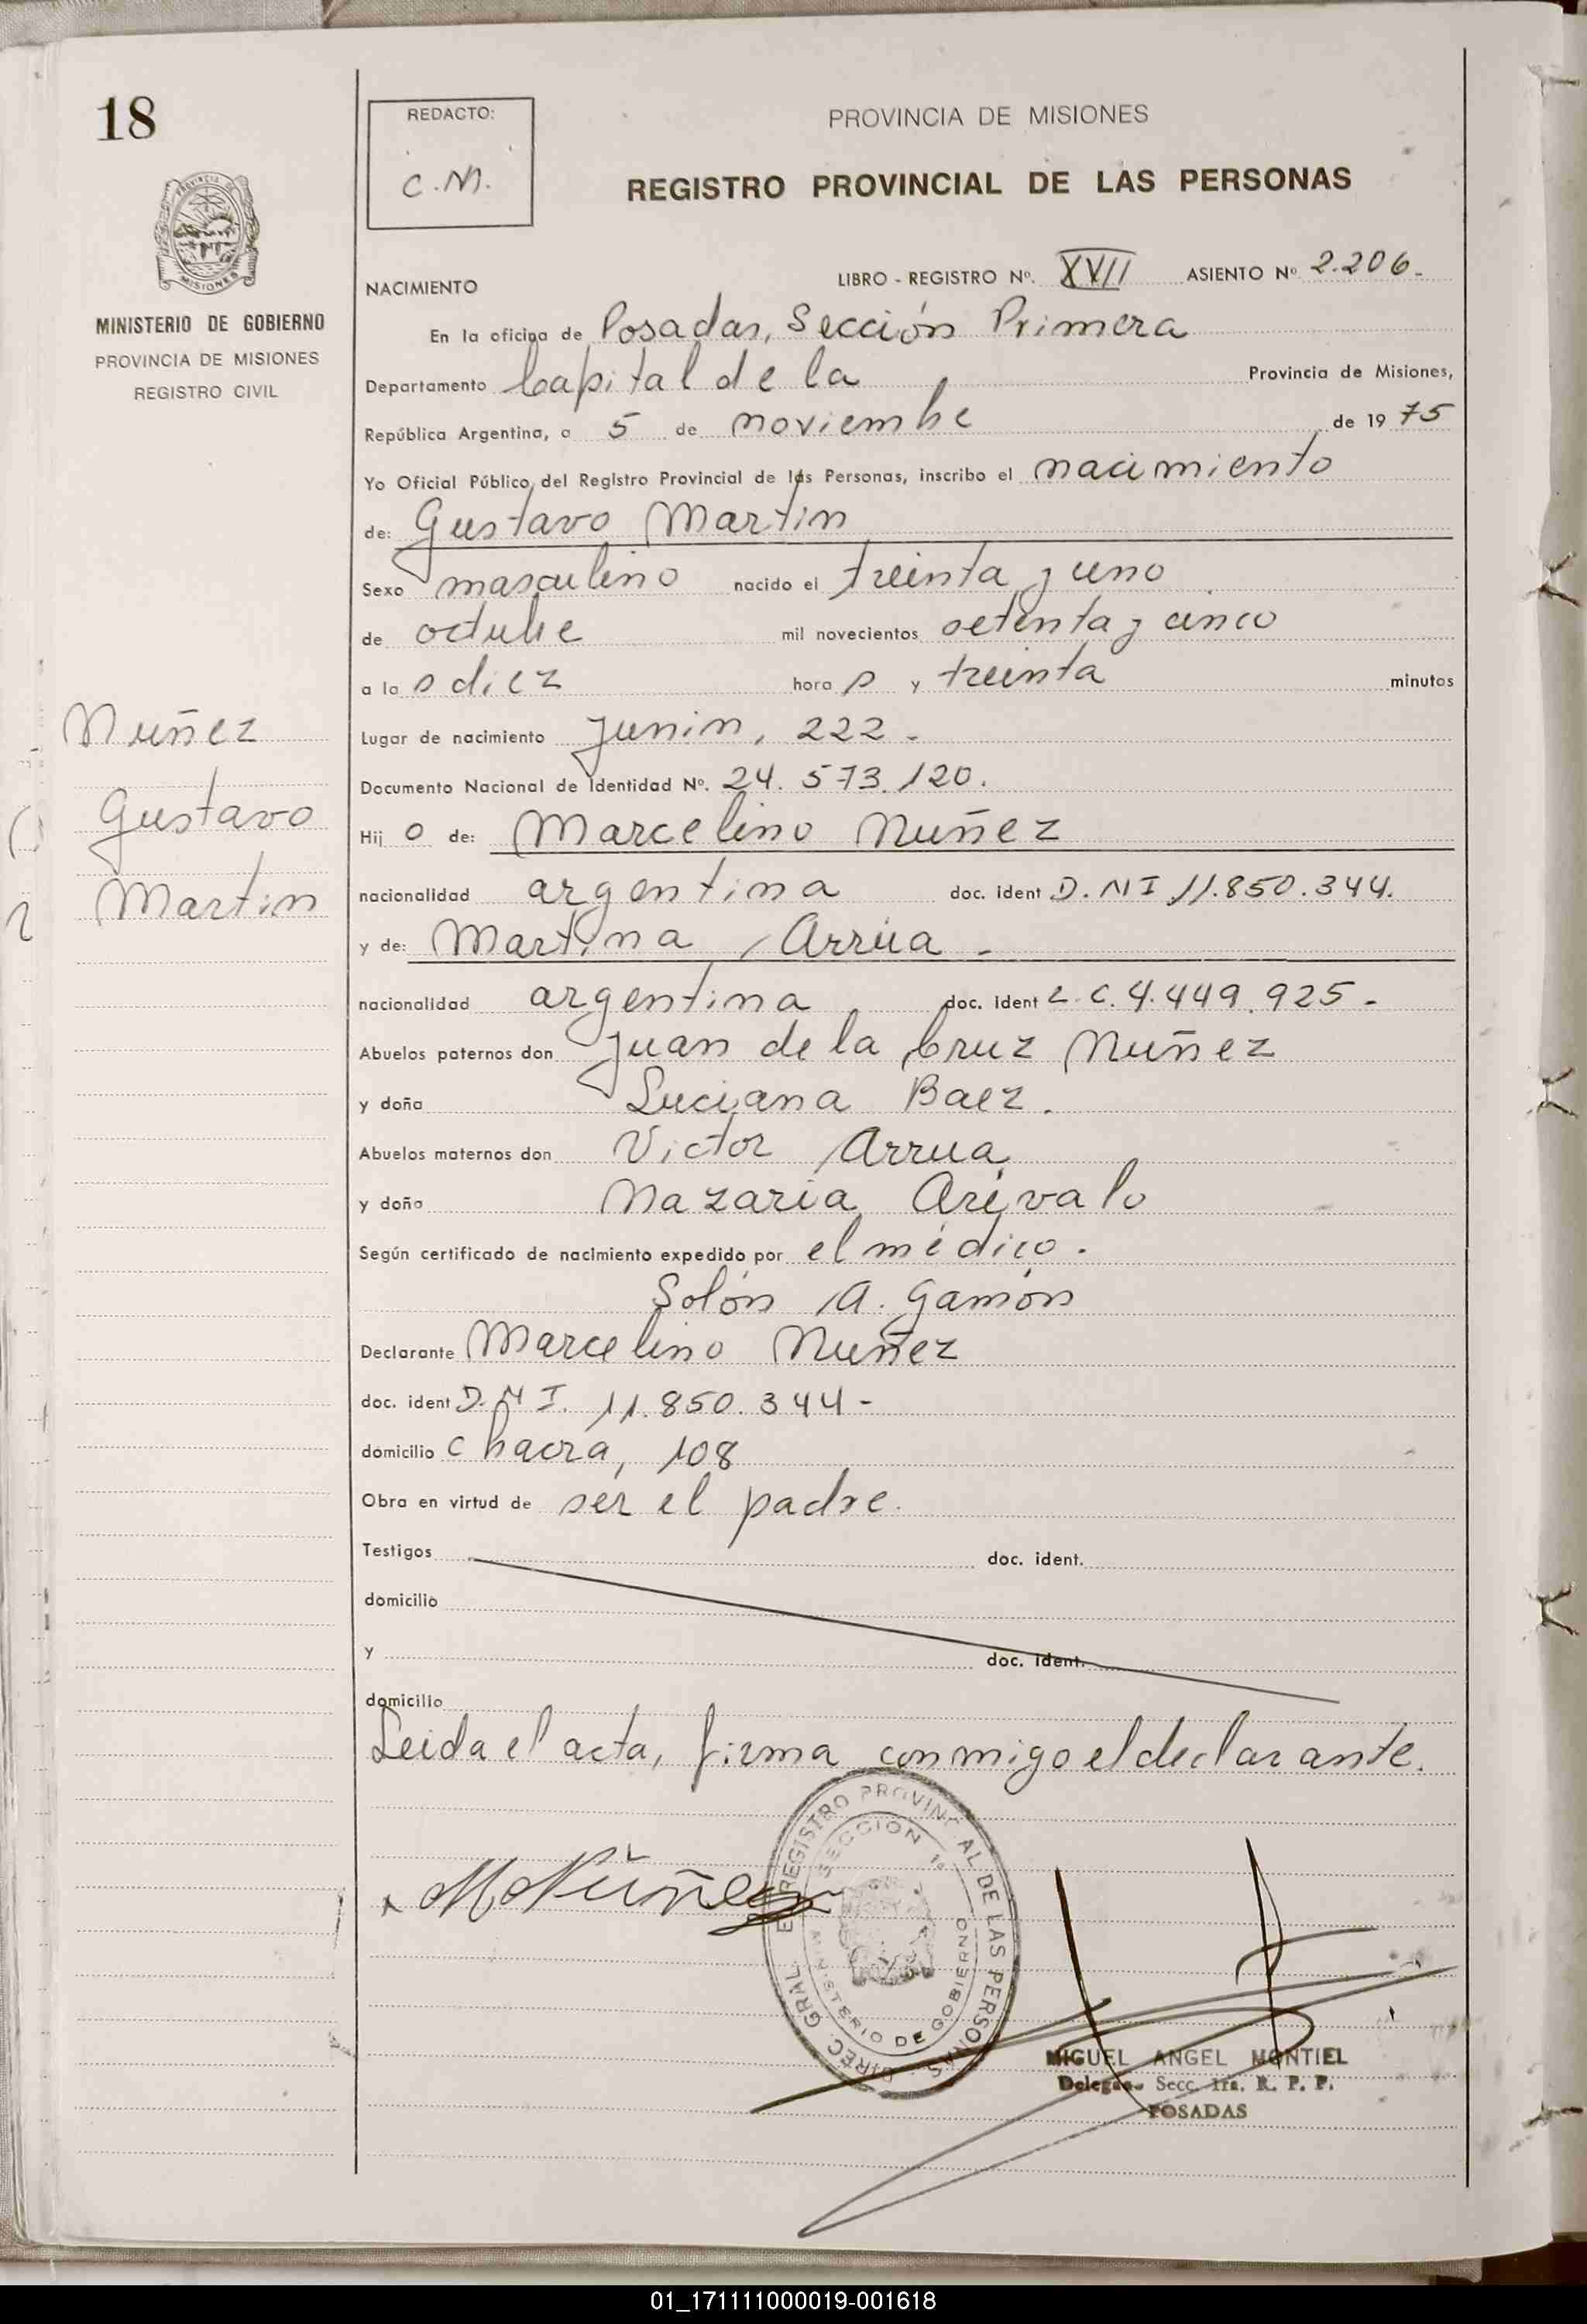 18
REDACTO:
C.M.
PROVINCIA DE MISIONES
REGISTRO PROVINCIAL DE LAS PERSONAS
MINISTERIO DE GOBIERNO
PROVINCIA DE MISIONES
REGISTRO CIVIL
NACIMIENTO LIBRO - REGISTRO Nº. XVII ASIENTO Nº 2.206-
En la oficina de Posadas, Sección Primera
Departamento Capital de la Provincia de Misiones,
República Argentina, a 5 de noviembre de 1975
Yo Oficial Público del Registro Provincial de las Personas, inscribo el nacimiento
de: Gustavo Martin
Sexo masculino nacido el treinta y uno
de octubre mil novecientos setenta y cinco
a las diez horas y treinta minutos
Lugar de nacimiento Junin, 222-
Documento Nacional de Identidad Nº. 24.573.120.
Hijo de: Marcelino Nuñez
nacionalidad argentina doc. ident D.NI 11.850.344.
y de: Martina Arrúa-
nacionalidad argentina doc. ident L.C.4.449.925-
Abuelos paternos don Juan de la Cruz Nuñez
y doña Luciana Baez.
Abuelos maternos don Victor Arrua
y doña Nazaria Arévalo
Según certificado de nacimiento expedido por el médico.
Solón A. Gamón
Declarante Marcelino Nuñez
doc. ident D.NI. 11.850.344-
domicilio chacra, 108
Obra en virtud de ser el padre.
Testigos doc. ident.
domicilio
y doc. ident.
domicilio
Leida el acta, firma conmigo el declarante.
Nuñez
Gustavo
Martin
MNúñez
DIREC. GRAL. REGISTRO PROVINCIAL DE LAS PERSONAS
SECCION 1ª
MINISTERIO DE GOBIERNO
MIGUEL ANGEL MONTIEL
Secc. 1ra. R. P. P.
POSADAS
01_171111000019-001618